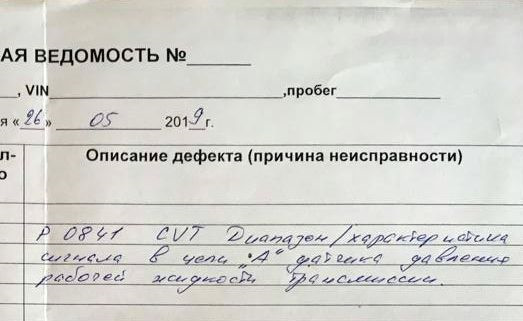 АЯ ВЕДОМОСТЬ №______
___, VIN______________________,пробег__________
я «26» 05 2019г.
л- Описание дефекта (причина неисправности)
о
P 0841 CVT Диапазон/характеристика
сигнала в цепи "А" датчика давления
рабочей жидкости трансмиссии.